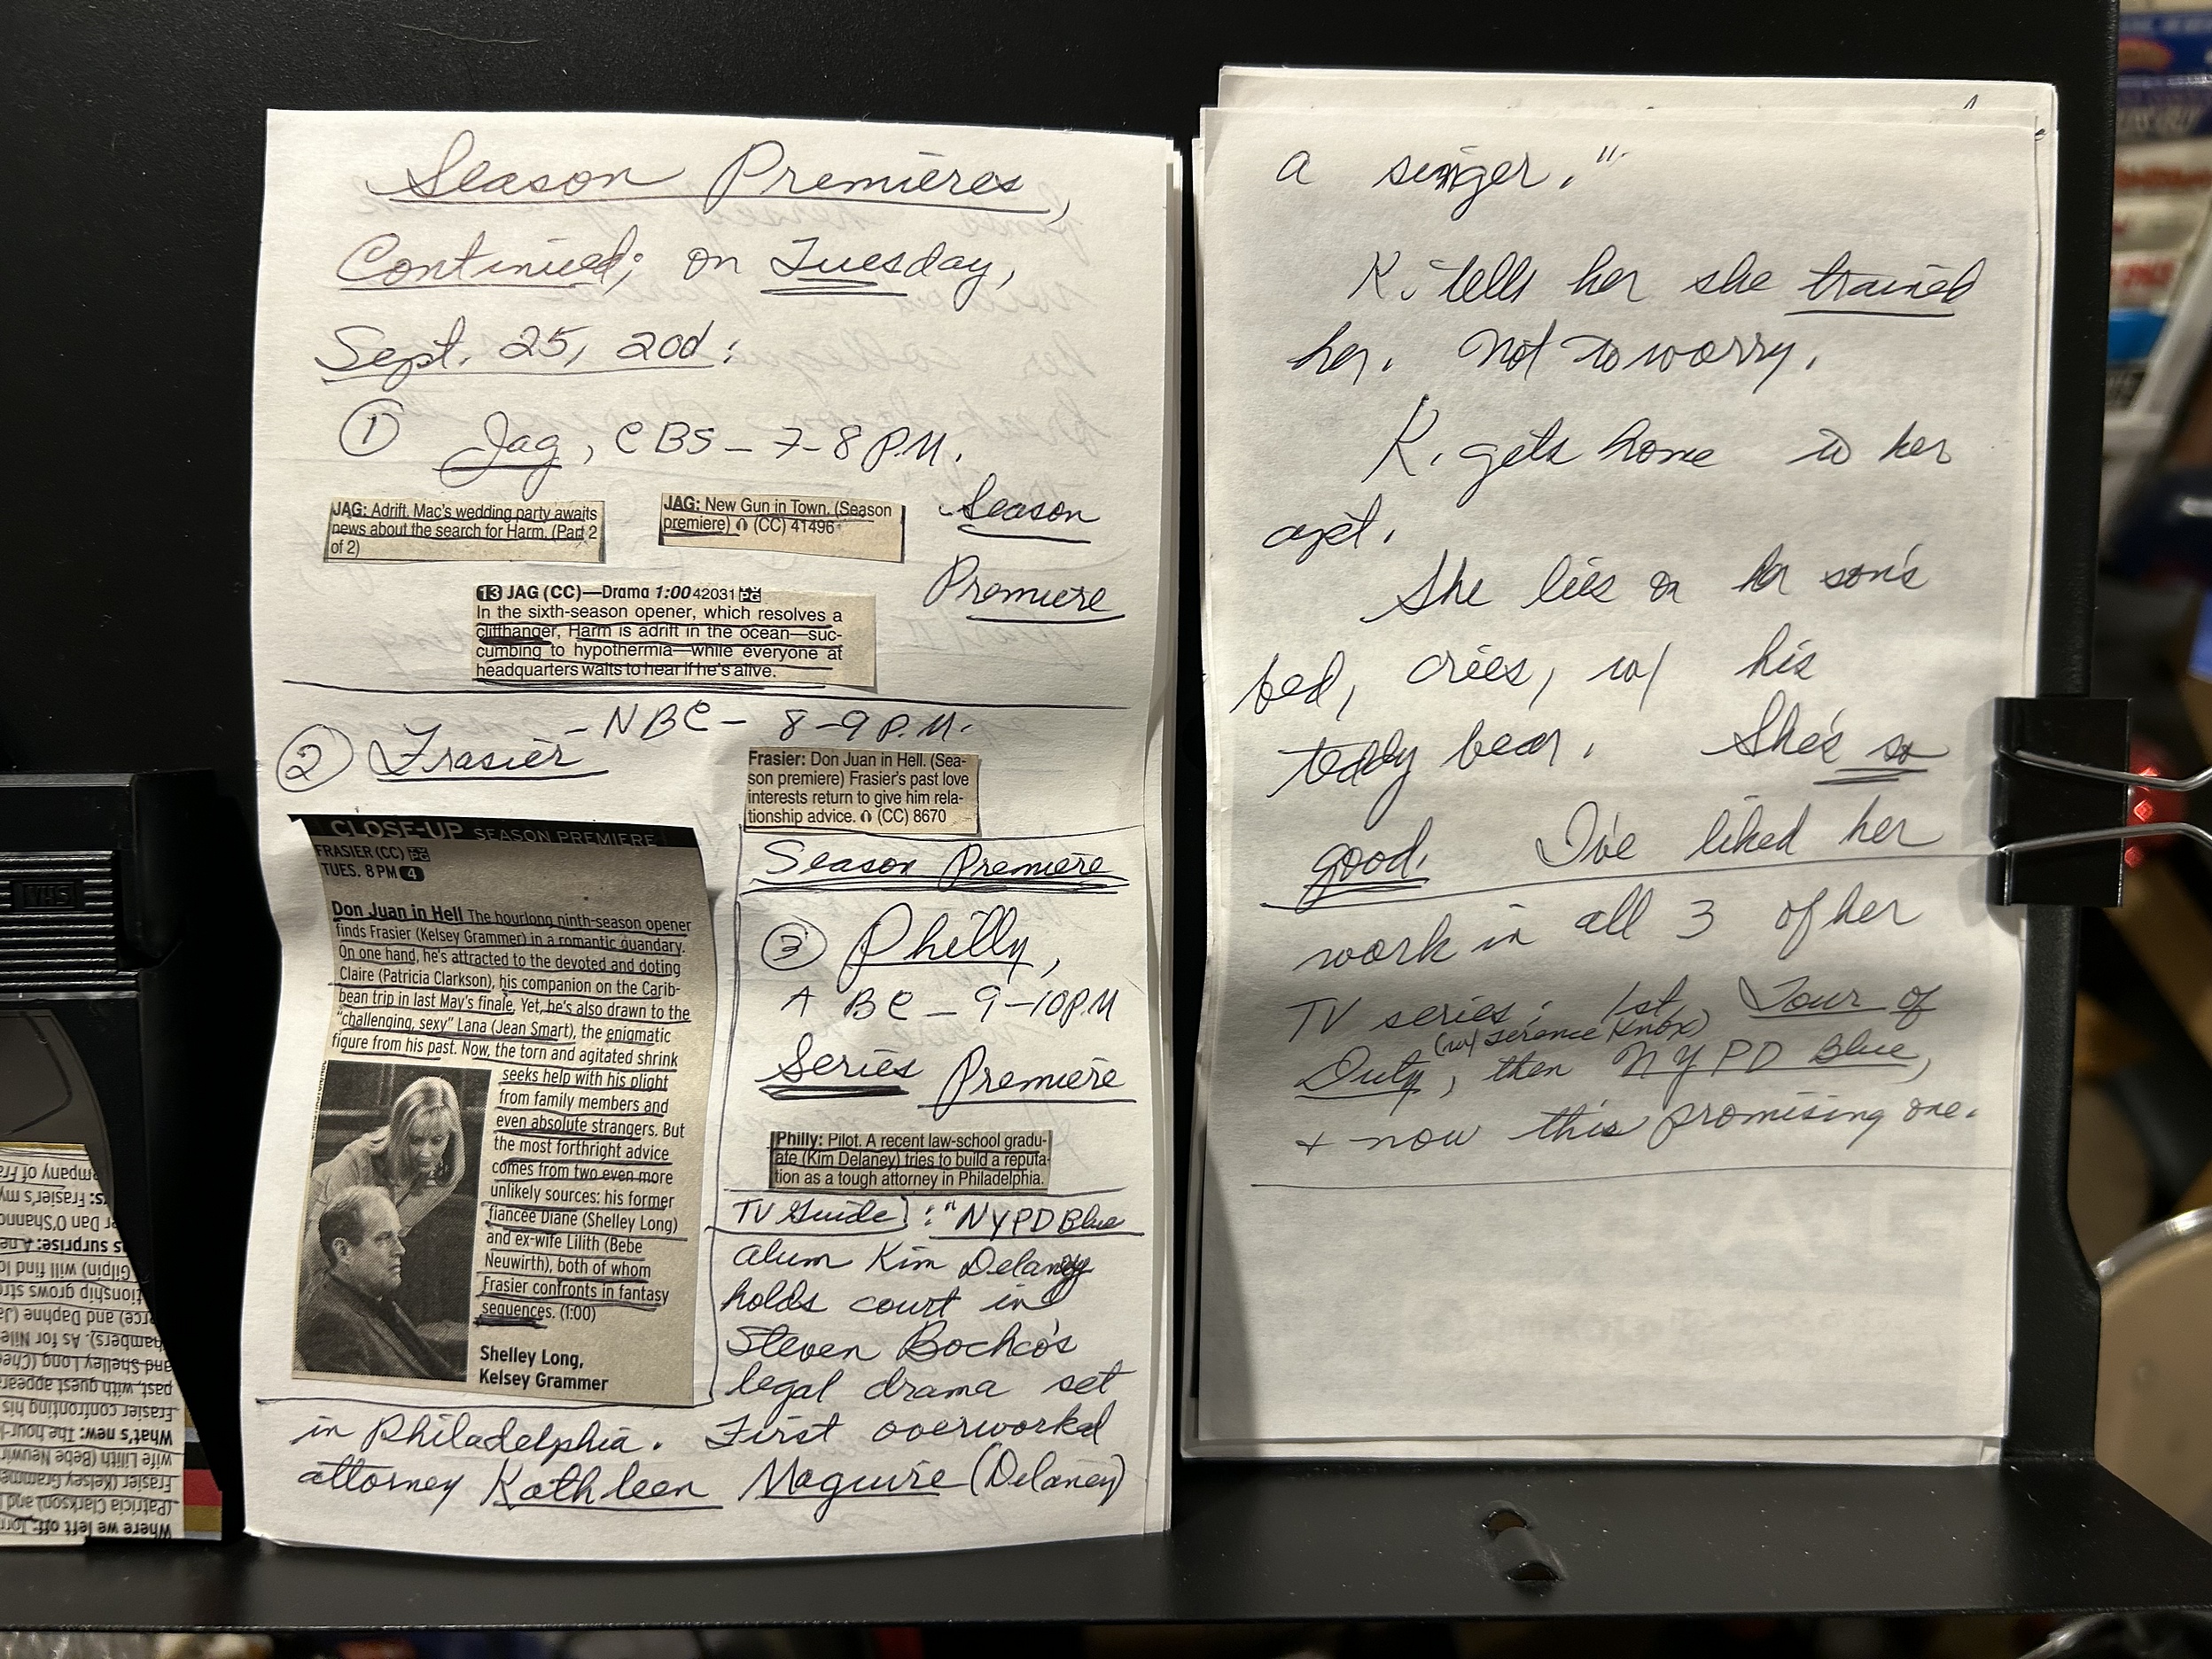 Season Premieres,
Continued; on Tuesday,
Sept. 25, 2001:
① Jag, CBS – 7-8 P.M.
JAG: Adrift. Mac's wedding party awaits
news about the search for Harm. (Part 2
of 2)
JAG: New Gun in Town. (Season
premiere) (CC) 41496
Season
Premiere
13 JAG (CC)—Drama 1:00 42031 PG
In the sixth-season opener, which resolves a
cliffhanger, Harm is adrift in the ocean—suc-
cumbing to hypothermia—while everyone at
headquarters waits to hear if he's alive.
② Frasier – NBC – 8-9 P.M.
Frasier: Don Juan in Hell. (Sea-
son premiere) Frasier's past love
interests return to give him rela-
tionship advice. (CC) 8670
CLOSE-UP SEASON PREMIERE
FRASIER (CC) PG
TUES. 8 PM 4
Don Juan in Hell The hourlong ninth-season opener
finds Frasier (Kelsey Grammer) in a romantic quandary.
On one hand, he's attracted to the devoted and doting
Claire (Patricia Clarkson), his companion on the Carib-
bean trip in last May's finale. Yet, he's also drawn to the
"challenging, sexy" Lana (Jean Smart), the enigmatic
figure from his past. Now, the torn and agitated shrink
seeks help with his plight
from family members and
even absolute strangers. But
the most forthright advice
comes from two even more
unlikely sources: his former
fiancée Diane (Shelley Long)
and ex-wife Lilith (Bebe
Neuwirth), both of whom
Frasier confronts in fantasy
sequences. (1:00)
Shelley Long,
Kelsey Grammer
Season Premiere
③ Philly,
ABC – 9-10 PM
Series Premiere
Philly: Pilot. A recent law-school gradu-
ate (Kim Delaney) tries to build a reputa-
tion as a tough attorney in Philadelphia.
TV Guide: "NYPD Blue
alum Kim Delaney
holds court in
Steven Bochco's
legal drama set
in Philadelphia. First overworked
attorney Kathleen Maguire (Delaney)
a singer."
K. tells her she trained
her. Not to worry.
K. gets home to her
apt.
She lies on her son's
bed, cries, w/ his
teddy bear. She's so
good. I've liked her
work in all 3 of her
TV series: 1st Tour of
(w/ Terence Knox)
Duty, then NYPD Blue,
+ now this promising one.
VHS
Where we left off:
(Patricia Clarkson) and
Frasier (Kelsey Grammer
wife Lilith (Bebe Neuwir
What's new: The hour-
Frasier confronting his
past, with guest appear
and Shelley Long